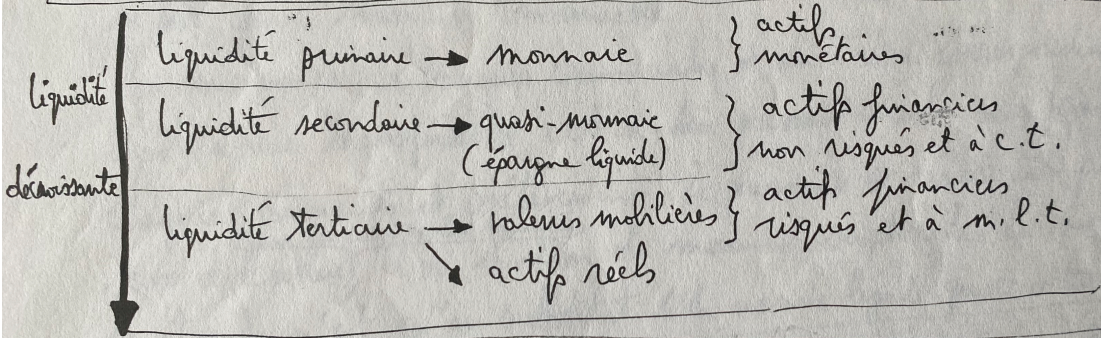 liquidité décroissante
liquidité primaire → monnaie } actifs monétaires
liquidité secondaire → quasi-monnaie (épargne liquide) } actifs financiers non risqués et à c.t.
liquidité tertiaire → valeurs mobilières } actifs financiers risqués et à m.l.t.
→ actifs réels